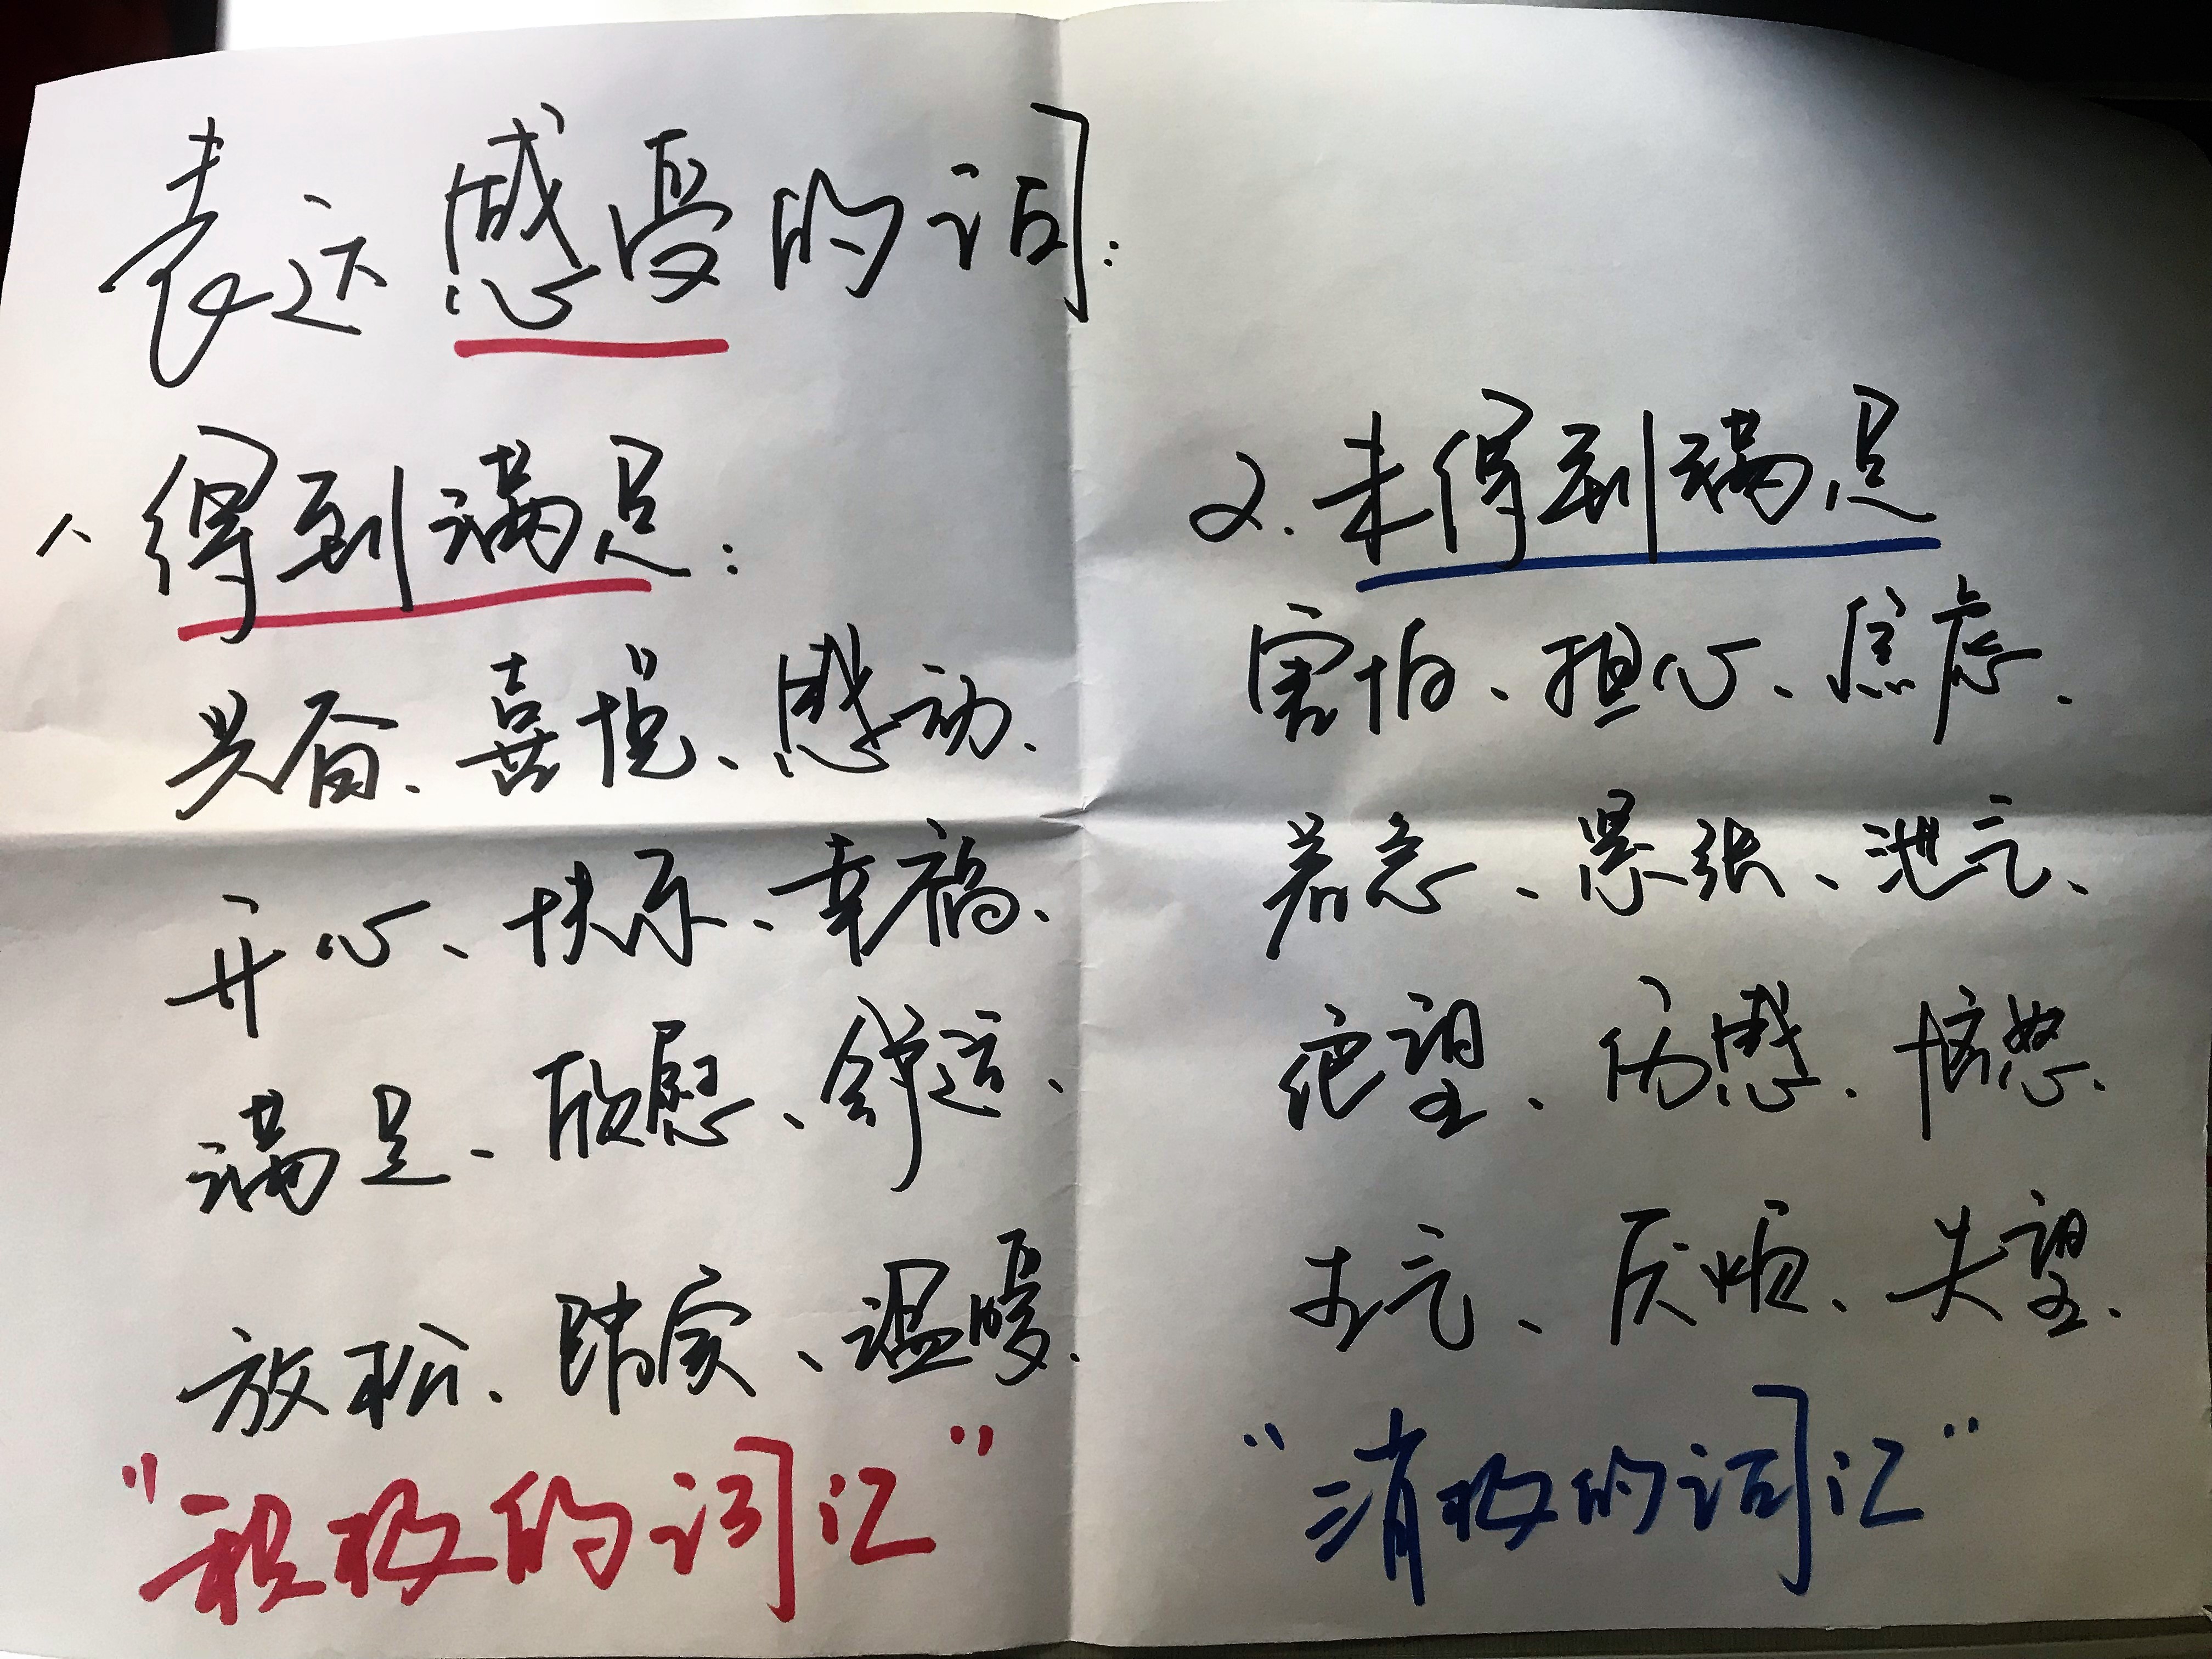 表达感受的词:
1、得到满足:
兴奋、喜悦、感动、
开心、快乐、幸福、
满足、欣慰、舒适、
放松、踏实、温暖、
"积极的词汇"
2.未得到满足
害怕、担心、焦虑、
着急、紧张、泄气、
绝望、伤感、恼怒、
生气、厌烦、失望、
"消极的词汇"